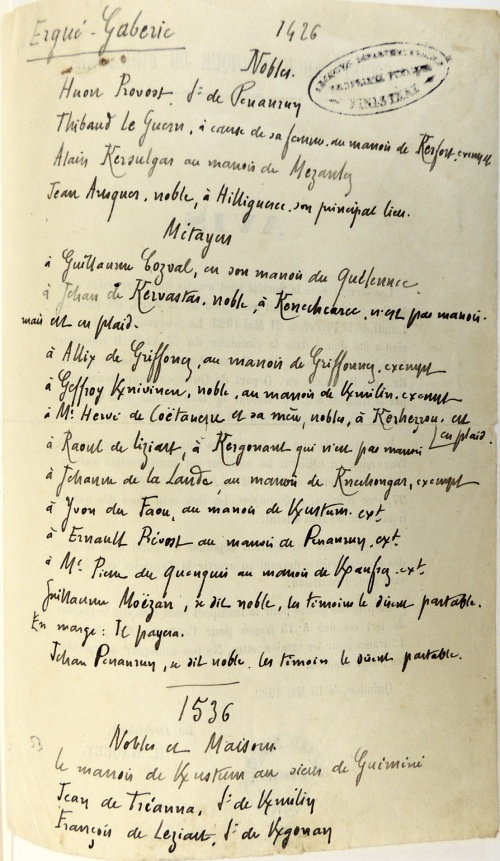 Ergué-Gaberic
1426
ARCHIVES DÉPARTEMENTALES
FINISTÈRE
Nobles.
Huon Provost, Sr de Penanrun
Thibaud Le Guern, à cause de sa femme, du manoir de Kerfort, exempt
Alain Kersulgar au manoir de Mezanlez
Jean Ausquer, noble, à Hilliguerec, son principal lieu.
Métayers
à Guillaume Cozval, en son manoir du Quélennec
à Jehan de Kervastar, noble, à Kernechcarec, n'est pas manoir.
mais est en plaid.
à Allix de Griffonez, au manoir de Griffonnez, exempt
à Geffroy Kynivinen, noble, au manoir de Kmilin, exempt
à Me Hervé de Coëtanezre et sa mère, nobles, à Kerhezrou, est
en plaid.
à Raoul de Liziart, à Kergonant qui n'est pas manoir
à Jehanne de la Lande, au manoir de Knechongar, exempt
à Yvon du Faou, au manoir de Kustum. ext.
à Ernault Prévost au manoir de Penanrun. ext.
à Me Pierre du Quenquis au manoir de Kanfrez. ext.
Guillaume Moëzan, se dit noble, les témoins le disent partable.
En marge: Il payera.
Jehan Penanrun, se dit noble. les témoins le disent partable.
1536
53
Nobles et Maisons
Le manoir de Kustum au sieur de Guéméné
Jean de Tréanna, Sr de Kmilin
François de Leziart, Sr de Kgonan